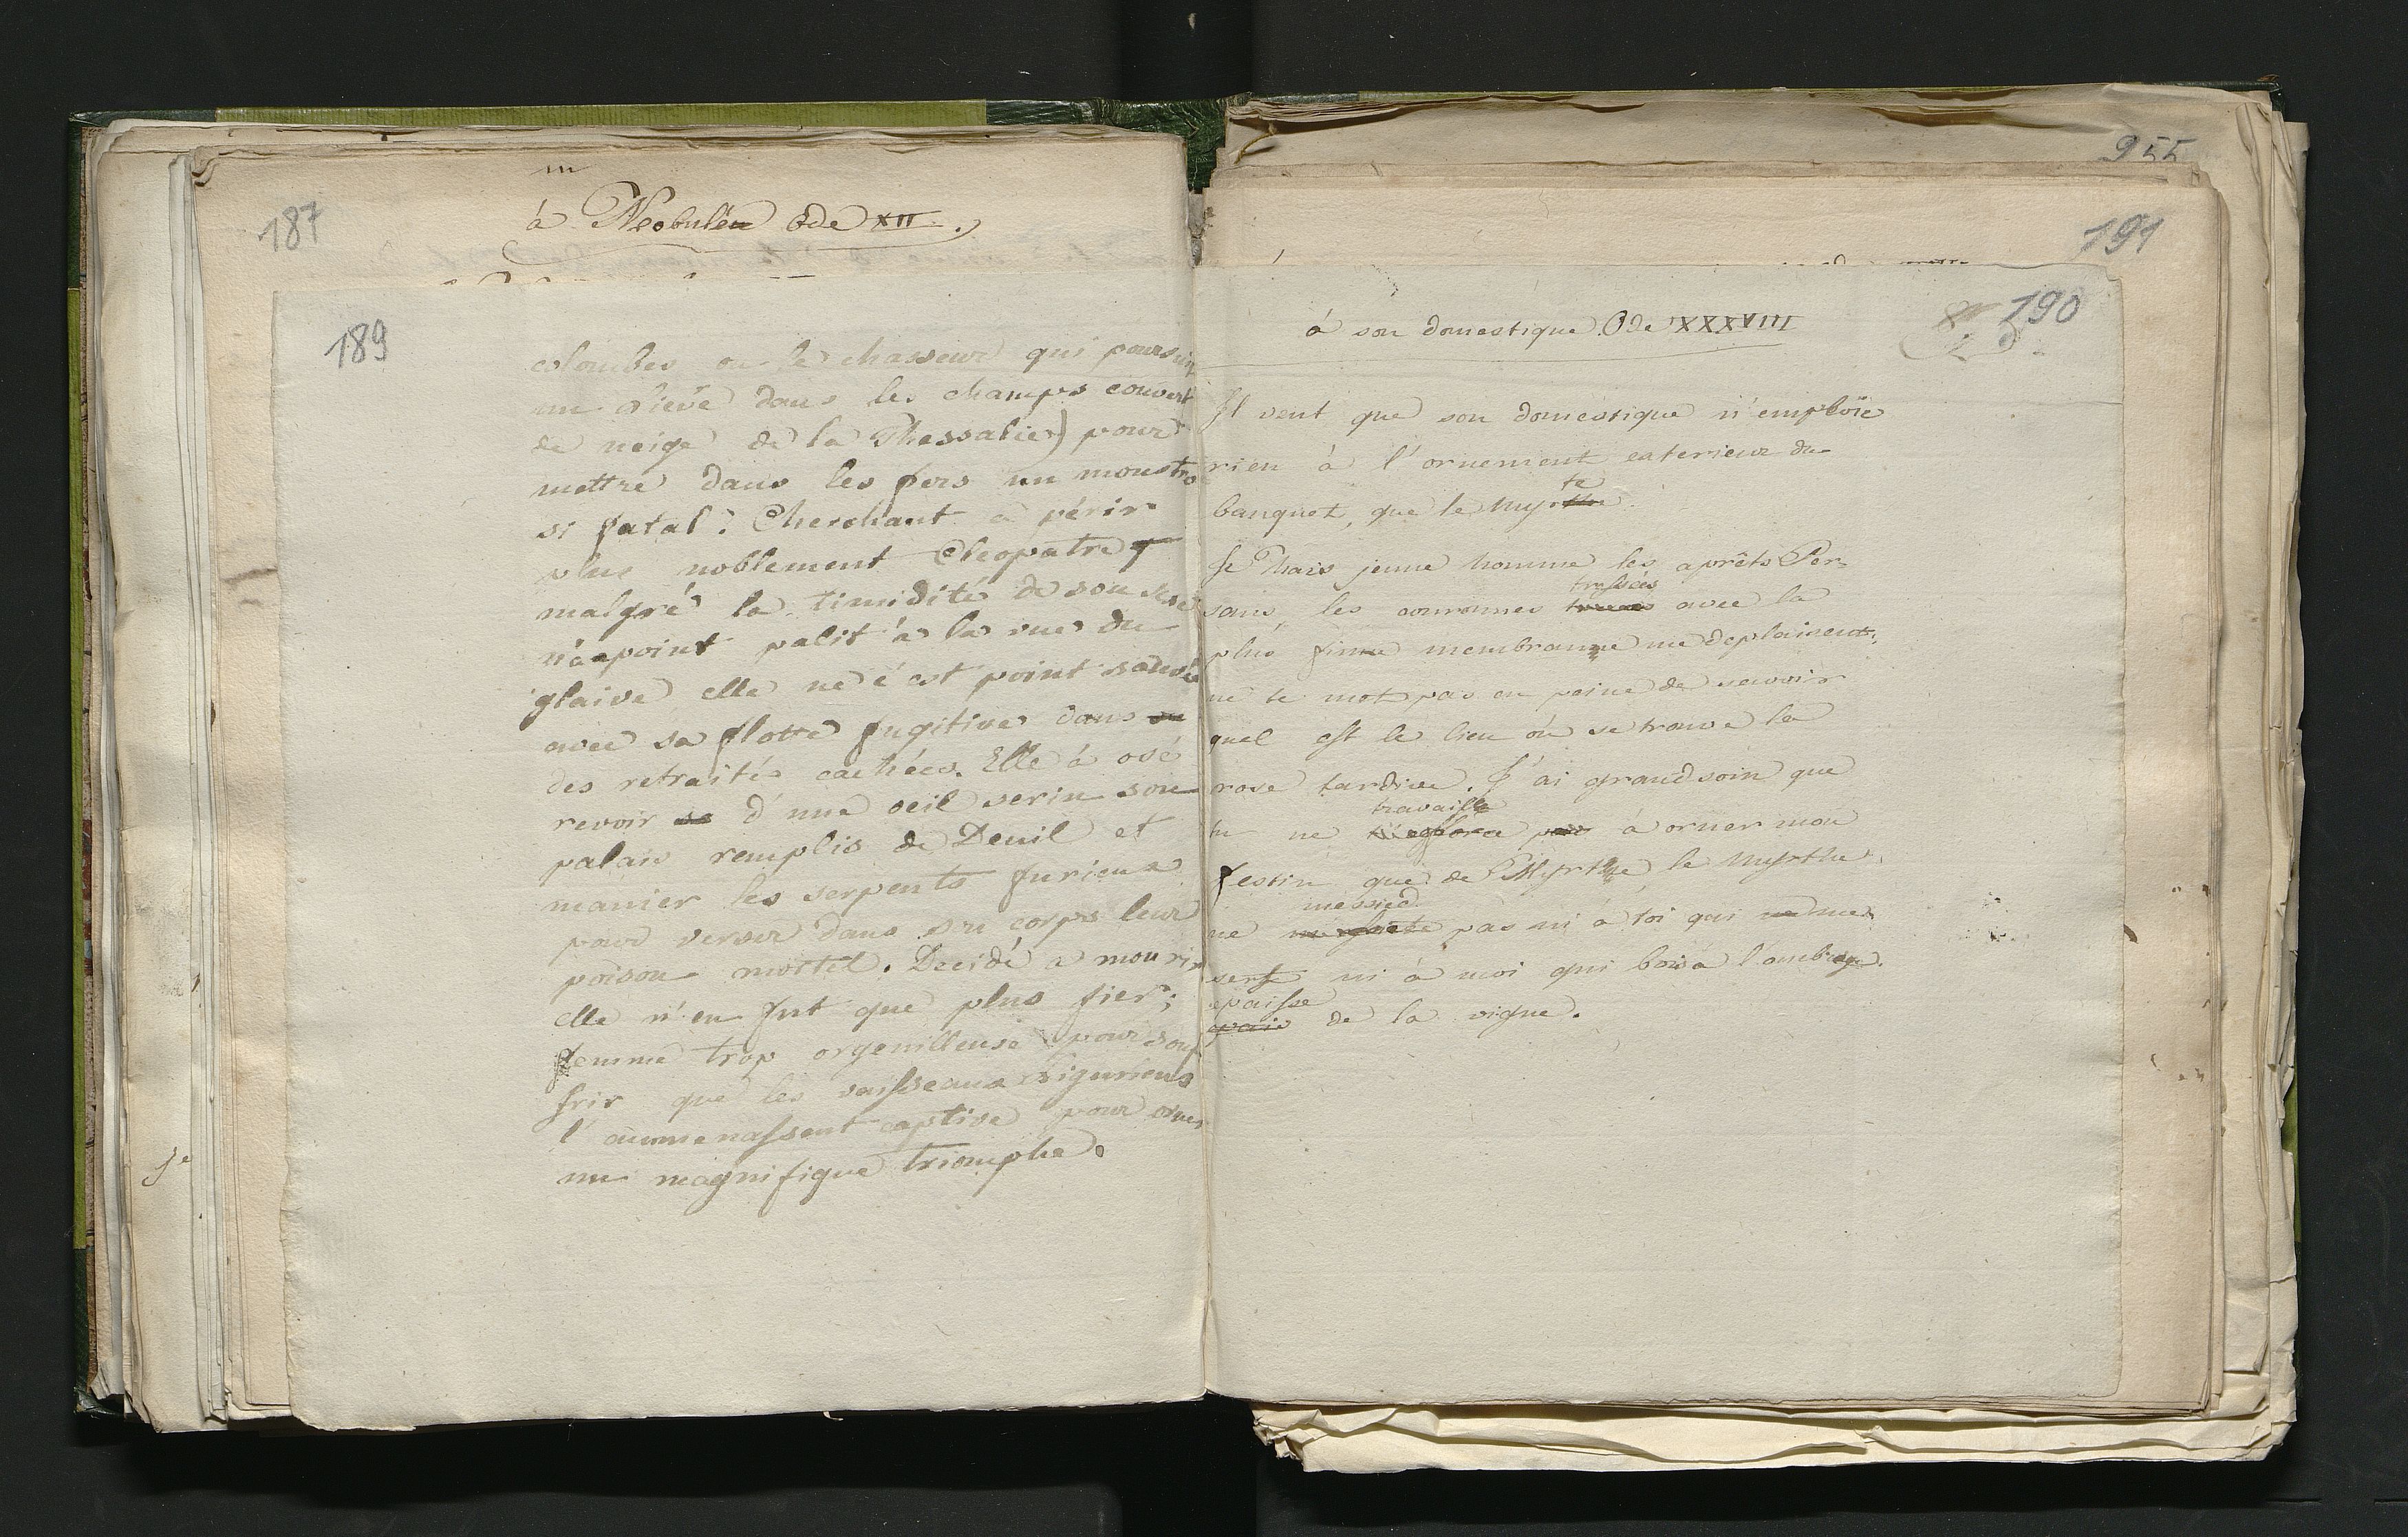 187
à Neobulée Ode XII.
189
colombes ou le chasseur qui poursuit
un lievé dans les champs couvert
de neige de la Thessalie) pour
mettre dans les fers un monstre
si fatal: Cherchant a périr
plus noblement Cleopatre
malgré la timidité de son sexe
n'a point palit à la vue du
glaive elle ne s'est point sauvée
avec sa flotte fugitive dans
des retraités cachées. Elle à osé
revoir d'une oeil serin son
palais remplis de Deuil et
manier les serpents furieux
pour verser dans son corps leur
poison mortel. Decidé a mourir
elle n'en fut que plus fier;
femme trop orgenilleuse pour souf
frir que les vaisseaux Liguriens
l'ammenassent captive pour orner
un magnifique triomphe.
955
191
190
à son domestique Ode XXXVIII
Il veut que son domestique n'emploïe
rien à l'ornement exterieur du
te
banquet, que le Myrthe.
Je Thais jeune homme les aprêts Per-
tressées
sans, les couronnes avec la
plus fine membranne me deplaisent,
ne te met pas en peine de scavoir
quel est le lieu où se trouve la
rose tardive. J'ai grand soin que
travaille
tu ne pas à orner mon
festin que de Myrthe, le Myrthe
messied
ne pas ni à toi qui me
sert ni à moi qui bois à l'ombrage
epaisse
epais de la vigne.